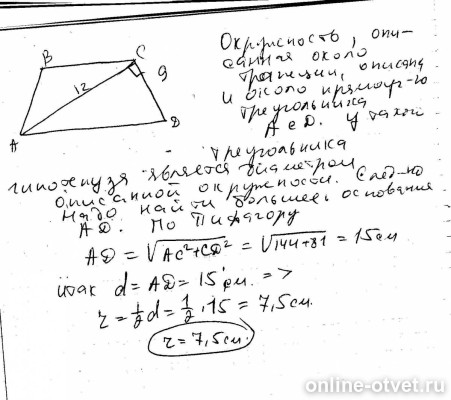 B C
12
9
A D
Окружность, опи-
санная около
трапеции, описана
и около прямоуг-го
треугольника
ACD. У такого
треугольника
гипотенуза является диаметром
описанной окружности. След-но
надо найти большее основание
AD. По Пифагору
AD = √AC²+CD² = √144+81 = 15 см
итак d = AD = 15 см. =>
r = ½d = ½·15 = 7,5 см.
r = 7,5 см.
online-otvet.ru